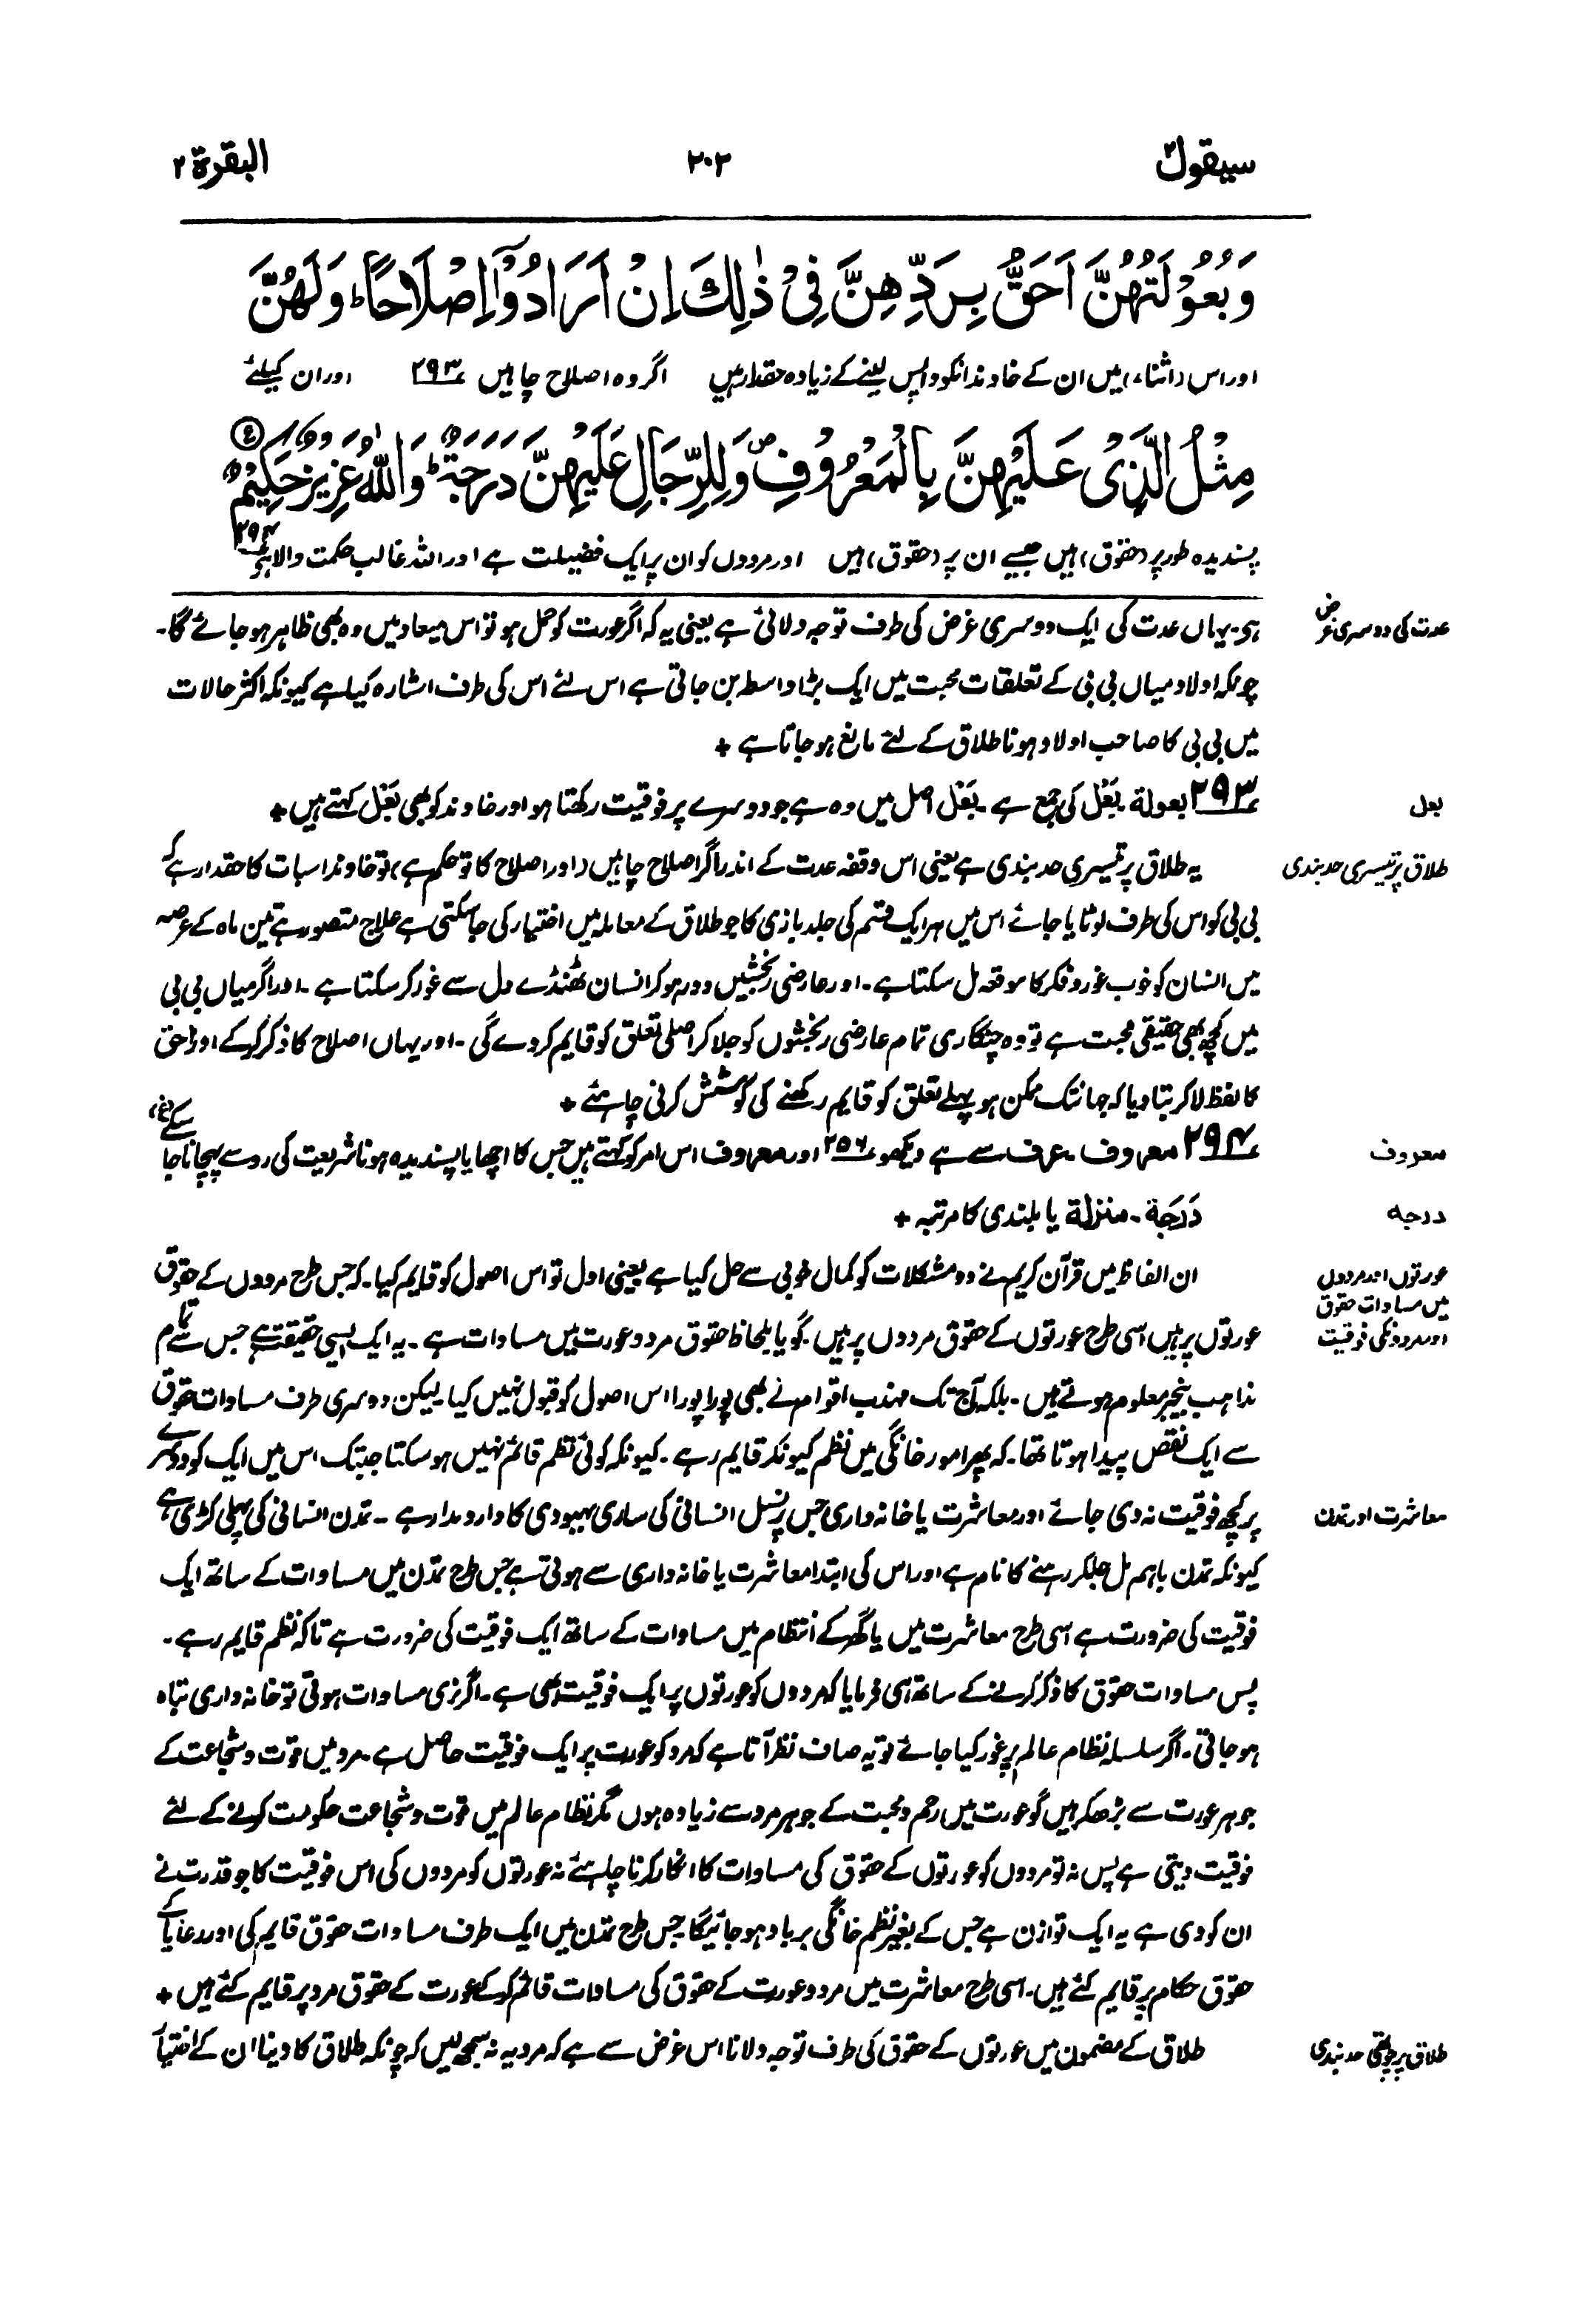 سیقول ۲
۲۰۳
البقرة ۲
وَبُعُوْلَتُهُنَّ اَحَقُّ بِرَدِّهِنَّ فِيْ ذٰلِكَ اِنْ اَرَادُوْٓا اِصْلَاحًا ؕ وَلَهُنَّ
اور اس (اثناء) میں ان کے خاوند انکو واپس لینے کے زیادہ حقدار ہیں اگر وہ اصلاح چاہیں ۲۹۳ اور ان کیلئے
مِثْلُ الَّذِيْ عَلَيْهِنَّ بِالْمَعْرُوْفِ ۪ وَلِلرِّجَالِ عَلَيْهِنَّ دَرَجَةٌ ؕ وَاللّٰهُ عَزِيْزٌ حَكِيْمٌ
پسندیدہ طور پر (حقوق) ہیں جیسے ان پر (حقوق) ہیں اور مردوں کو ان پر ایک فضیلت ہے اور اللہ غالب حکمت والا ہے ۲۹۴
عدت کی دوسری غرض
ہی۔ یہاں عدت کی ایک دوسری غرض کی طرف توجہ دلائی ہے یعنی یہ کہ اگر عورت کو حمل ہو تو اس میعاد میں وہ بھی ظاہر ہو جائے گا۔
چونکہ اولاد میاں بی بی کے تعلقات محبت میں ایک بڑا واسطہ بن جاتی ہے اس لئے اس کی طرف اشارہ کیا ہے کیونکہ اکثر حالات
میں بی بی کا صاحب اولاد ہونا طلاق کے لئے مانع ہو جاتا ہے +
بعل
۲۹۳ بعولة۔ بَعْل کی جمع ہے۔ بَعْل اصل میں وہ ہے جو دوسرے پر فوقیت رکھتا ہو اور خاوند کو بھی بَعْل کہتے ہیں +
طلاق پر تیسری حد بندی
یہ طلاق پر تیسری حد بندی ہے یعنی اس وقفہ عدت کے اندر اگر اصلاح چاہیں (اور اصلاح کا تو حکم ہے) تو خاوند اسبات کا حقدار ہے کہ
بی بی کو اس کی طرف لوٹایا جائے اس میں ہر ایک قسم کی جلد بازی کا جو طلاق کے معاملہ میں اختیار کی جا سکتی ہے علاج متصور ہے تین ماہ کے عرصہ
میں انسان کو خوب غور و فکر کا موقعہ مل سکتا ہے۔ اور عارضی رنجشیں دور ہو کر انسان ٹھنڈے دل سے غور کر سکتا ہے۔ اور اگر میاں بی بی
میں کچھ بھی حقیقی محبت ہے تو وہ چنگاری تمام عارضی رنجشوں کو جلا کر اصلی تعلق کو قایم کر دے گی۔ اور یہاں اصلاح کا ذکر کر کے اور احق
کا لفظ لا کر بتا دیا کہ جہانتک ممکن ہو پہلے تعلق کو قایم رکھنے کی کوشش کرنی چاہئے +
معروف
۲۹۴ معروف۔ عرف سے ہے دیکھو ۲۵۶ اور معروف اس امر کو کہتے ہیں جس کا اچھا یا پسندیدہ ہونا شریعت کی رو سے پہچانا جا سکے (غ)
درجہ
دَرَجَة۔ منزلة یا بلندی کا مرتبہ +
عورتوں اور مردوں میں مساوات حقوق اور مردونکی فوقیت
ان الفاظ میں قرآن کریم نے دو مشکلات کو کمال خوبی سے حل کیا ہے یعنی اول تو اس اصول کو قایم کیا۔ کہ جس طرح مردوں کے حقوق
عورتوں پر ہیں اسی طرح عورتوں کے حقوق مردوں پر ہیں۔ گویا بلحاظ حقوق مرد و عورت میں مساوات ہے۔ یہ ایک ایسی حقیقت ہے جس سے تمام
مذاہب بیخبر معلوم ہوتے ہیں۔ بلکہ آج تک مہذب اقوام نے بھی پورا پورا اس اصول کو قبول نہیں کیا۔ لیکن دوسری طرف مساوات حقوق
سے ایک نقص پیدا ہوتا تھا۔ کہ پھر امور خانگی میں نظم کیونکر قایم رہے۔ کیونکہ کوئی نظم قائم نہیں ہو سکتا جبتک اس میں ایک کو دوسرے
معاشرت اور تمدن
پر کچھ فوقیت نہ دی جائے اور معاشرت یا خانہ داری جس پر نسل انسانی کی ساری بہبودی کا دارومدار ہے۔ تمدن انسانی کی پہلی کڑی ہے
کیونکہ تمدن باہم مل جلکر رہنے کا نام ہے اور اس کی ابتدا معاشرت یا خانہ داری سے ہوتی ہے جس طرح تمدن میں مساوات کے ساتھ ایک
فوقیت کی ضرورت ہے اسی طرح معاشرت میں یا گھر کے انتظام میں مساوات کے ساتھ ایک فوقیت کی ضرورت ہے تاکہ نظم قایم رہے۔
پس مساوات حقوق کا ذکر کرنے کے ساتھ ہی فرمایا کہ مردوں کو عورتوں پر ایک فوقیت بھی ہے۔ اگر نری مساوات ہوتی تو خانہ داری تباہ
ہو جاتی۔ اگر سلسلہ نظام عالم پر غور کیا جائے تو یہ صاف نظر آتا ہے کہ مرد کو عورت پر ایک فوقیت حاصل ہے۔ مرد میں قوت و شجاعت کے
جوہر عورت سے بڑھکر ہیں گو عورت میں رحم و محبت کے جوہر مرد سے زیادہ ہوں مگر نظام عالم میں قوت و شجاعت حکومت کرنے کے لئے
فوقیت دیتی ہے پس نہ تو مردوں کو عورتوں کے حقوق کی مساوات کا انکار کرنا چاہئے نہ عورتوں کو مردوں کی اس فوقیت کا جو قدرت نے
ان کو دی ہے یہ ایک توازن ہے جس کے بغیر نظم خانگی برباد ہو جائیگا۔ جس طرح تمدن میں ایک طرف مساوات حقوق قایم کی اور رعایا کے
حقوق حکام پر قایم کئے ہیں۔ اسی طرح معاشرت میں مرد و عورت کے حقوق کی مساوات قائم کر کے عورت کے حقوق مرد پر قایم کئے ہیں +
طلاق پر چوتھی حد بندی
طلاق کے مضمون میں عورتوں کے حقوق کی طرف توجہ دلانا اس غرض سے ہے کہ مرد یہ نہ سمجھ لیں کہ چونکہ طلاق کا دینا ان کے اختیار